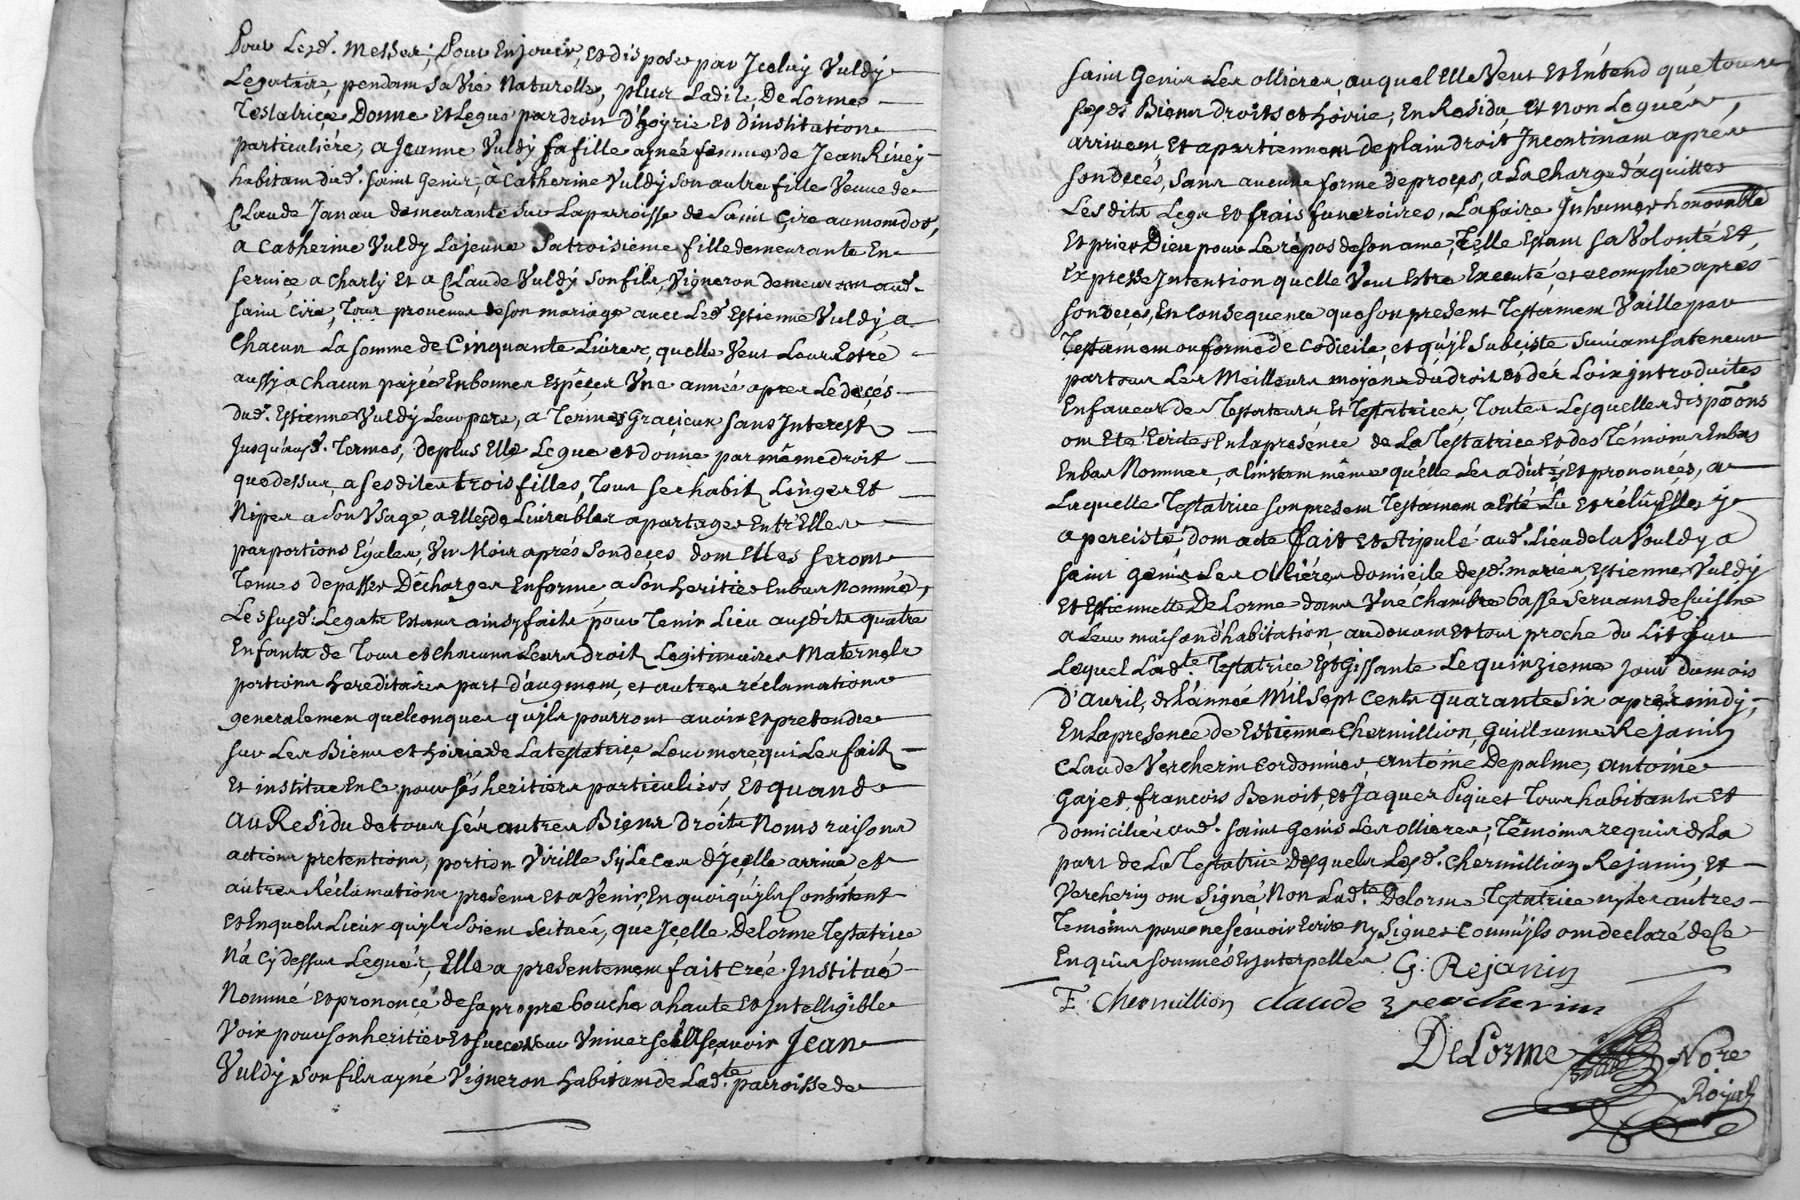 Pour Lesd. Messes; Pour En jouir, et disposer par Iceluy Vuldy
Legataire, pendant sa Vie Naturelle, plus Ladite, De Lorme
Testatrice Donne et Legue par droit d'hoyrie et d'institution
particuliére, a Jeanne Vuldy sa fille aynée femme de Jean Rivey
habitant dud. saint Genis, à Catherine Vuldy son autre fille Veuve de
Claude Janau demeurante sur La parroisse de Saint Cire au mondor,
a Catherine Vuldy La jeune Sa troisiéme fille demeurante En
service a Charly et a Claude Vuldy son fils, Vigneron demeurant aud.
saint Cire, Tous provenus de son mariage avec Led. Estienne Vuldy, a
Chacun La somme de Cinquante Livres, quelle Veut Leur Estre
aussy a Chacun payée En bonnes Espêces Une année apres Le decés
dud. Estienne Vuldy Leur pere, a Termes Gracieux sans Interest
Jusqu'ausd. Termes, De plus Elle Legue et donne par même droit
que dessus, a ses dites trois filles, Tous ses habits Linges Et
Nipes a Son Usage, a Elles de Livrables a partager Entr'Elles
par portions Egales, Un Mois aprés son decés, dont Elles seront
Tenues de passer Décharges En forme, a son heritier En bas Nommé,
Les susd. Legats Estans ainsy faits pour Tenir Lieu ausdits quatre
Enfants de Tous et chacuns Leurs droits Legitimaires Maternels
portions hereditaires part d'augment, et autres réclamations
generalement quelconques qu'ils pourront avoir et pretendre
sur Les Biens et hoirie de La testatrice, Leur mere qui Les fait
Et institue En Ce pour sés heritiers particuliers, Et quand
au Residu de tous sés autres Biens Droits Noms raisons
actions pretentions, portion Virille sy Le Cas d'Icelle arrive et
autres Réclamations presens Et a Venir, En quoi qu'ils Consistent
et En quels Lieux qu'ils soient scitués, que Icelle Delorme Testatrice
N'a Cy dessus Legués, Elle a presentement fait crée Institué
Nommé et prononcé de sa propre bouche a haute et intelligible
Voix pour son heritier et successeur Universel asçavoir Jean
Vuldy son fils ayné Vigneron habitant de Lad.te parroisse de
saint Genis Les ollieres, auquel Elle Veut Et Entend que tous
sesds Biens droits et hoirie, En Residu et non Legués,
arrivent Et apartiennent de plain droit Incontinant aprés
son decés, sans aucune forme de procés, a La charge d'aquitter
Les dits Legs et frais funeraires, La faire Inhumer honorable
Et prier Dieu pour Le repos de son ame, Telle Estant sa Volonté Et,
Expresse Intention quelle Veut Estre Executé, et acomplie apres
son decés, En Consequence que son present Testament Vaille par
Testament ou forme de Codicile, et qu'il subciste suivant sa teneur
par tous Les Meilleurs moyens du droit et dés Loix introduites
En faveur des Testateurs Et Testatrices, Toutes Lesquelles dispõõns
ont Eté Ecrites En la presénce de La Testatrice et des Témoins En bas
En bas Nommés, a linstant même qu'elle Les a dités et prononcées, a
Laquelle Testatrice son present Testament a Eté Lu et rélû, Elle y
a perciste, dont acte fait et stipulé aud. Lieu de la Vouldy a
saint Genis Les Olliéres domicile desd. mariés Estienne Vuldy
Et Estiennette De Lorme dans Une Chambre basse servant de Cuisine
a Leur maison d'habitation au devant et tout proche du Lit sur
Lequel Lad.te Testatrice Est Gissante Le quinzieme jour du mois
d'Avril, de L'année Mil sept Cents quarante Six aprés midy,
En La presence de Estienne Chermillion, Guillaume Rejanin
Claude Vercherin Cordonnier, antoine Depalme, antoine
Gayet, françois Benoit, et Jaques Piquet Tous habitants Et
domiciliés aud. saint Genis Les ollieres, Témoins requis de La
part de La Testatrice Desquels Lesd. Chermillion Rejanin, Et
Vercherin ont signé, Non Lad.te Delorme Testatrice ny les autres
Temoins pour ne sçavoir Ecrire Ny Signer Comm'ils ont declaré de Ce
Enquis sommés Et interpellés G. Rejanin
E. Chermillion claude vercherin
De Lorme Nore
Royal